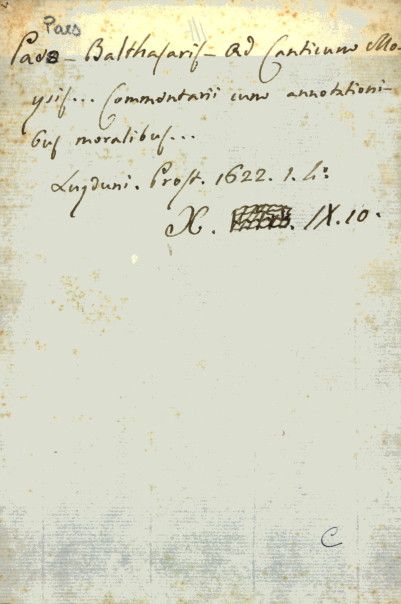 Paes
Paes - Balthasaris - Ad Canticum Mo-
ysis... Commentarii cum annotationi-
bus moralibus...
Lugduni. Prost. 1622. 1. 4:
X. IX. 10.
C